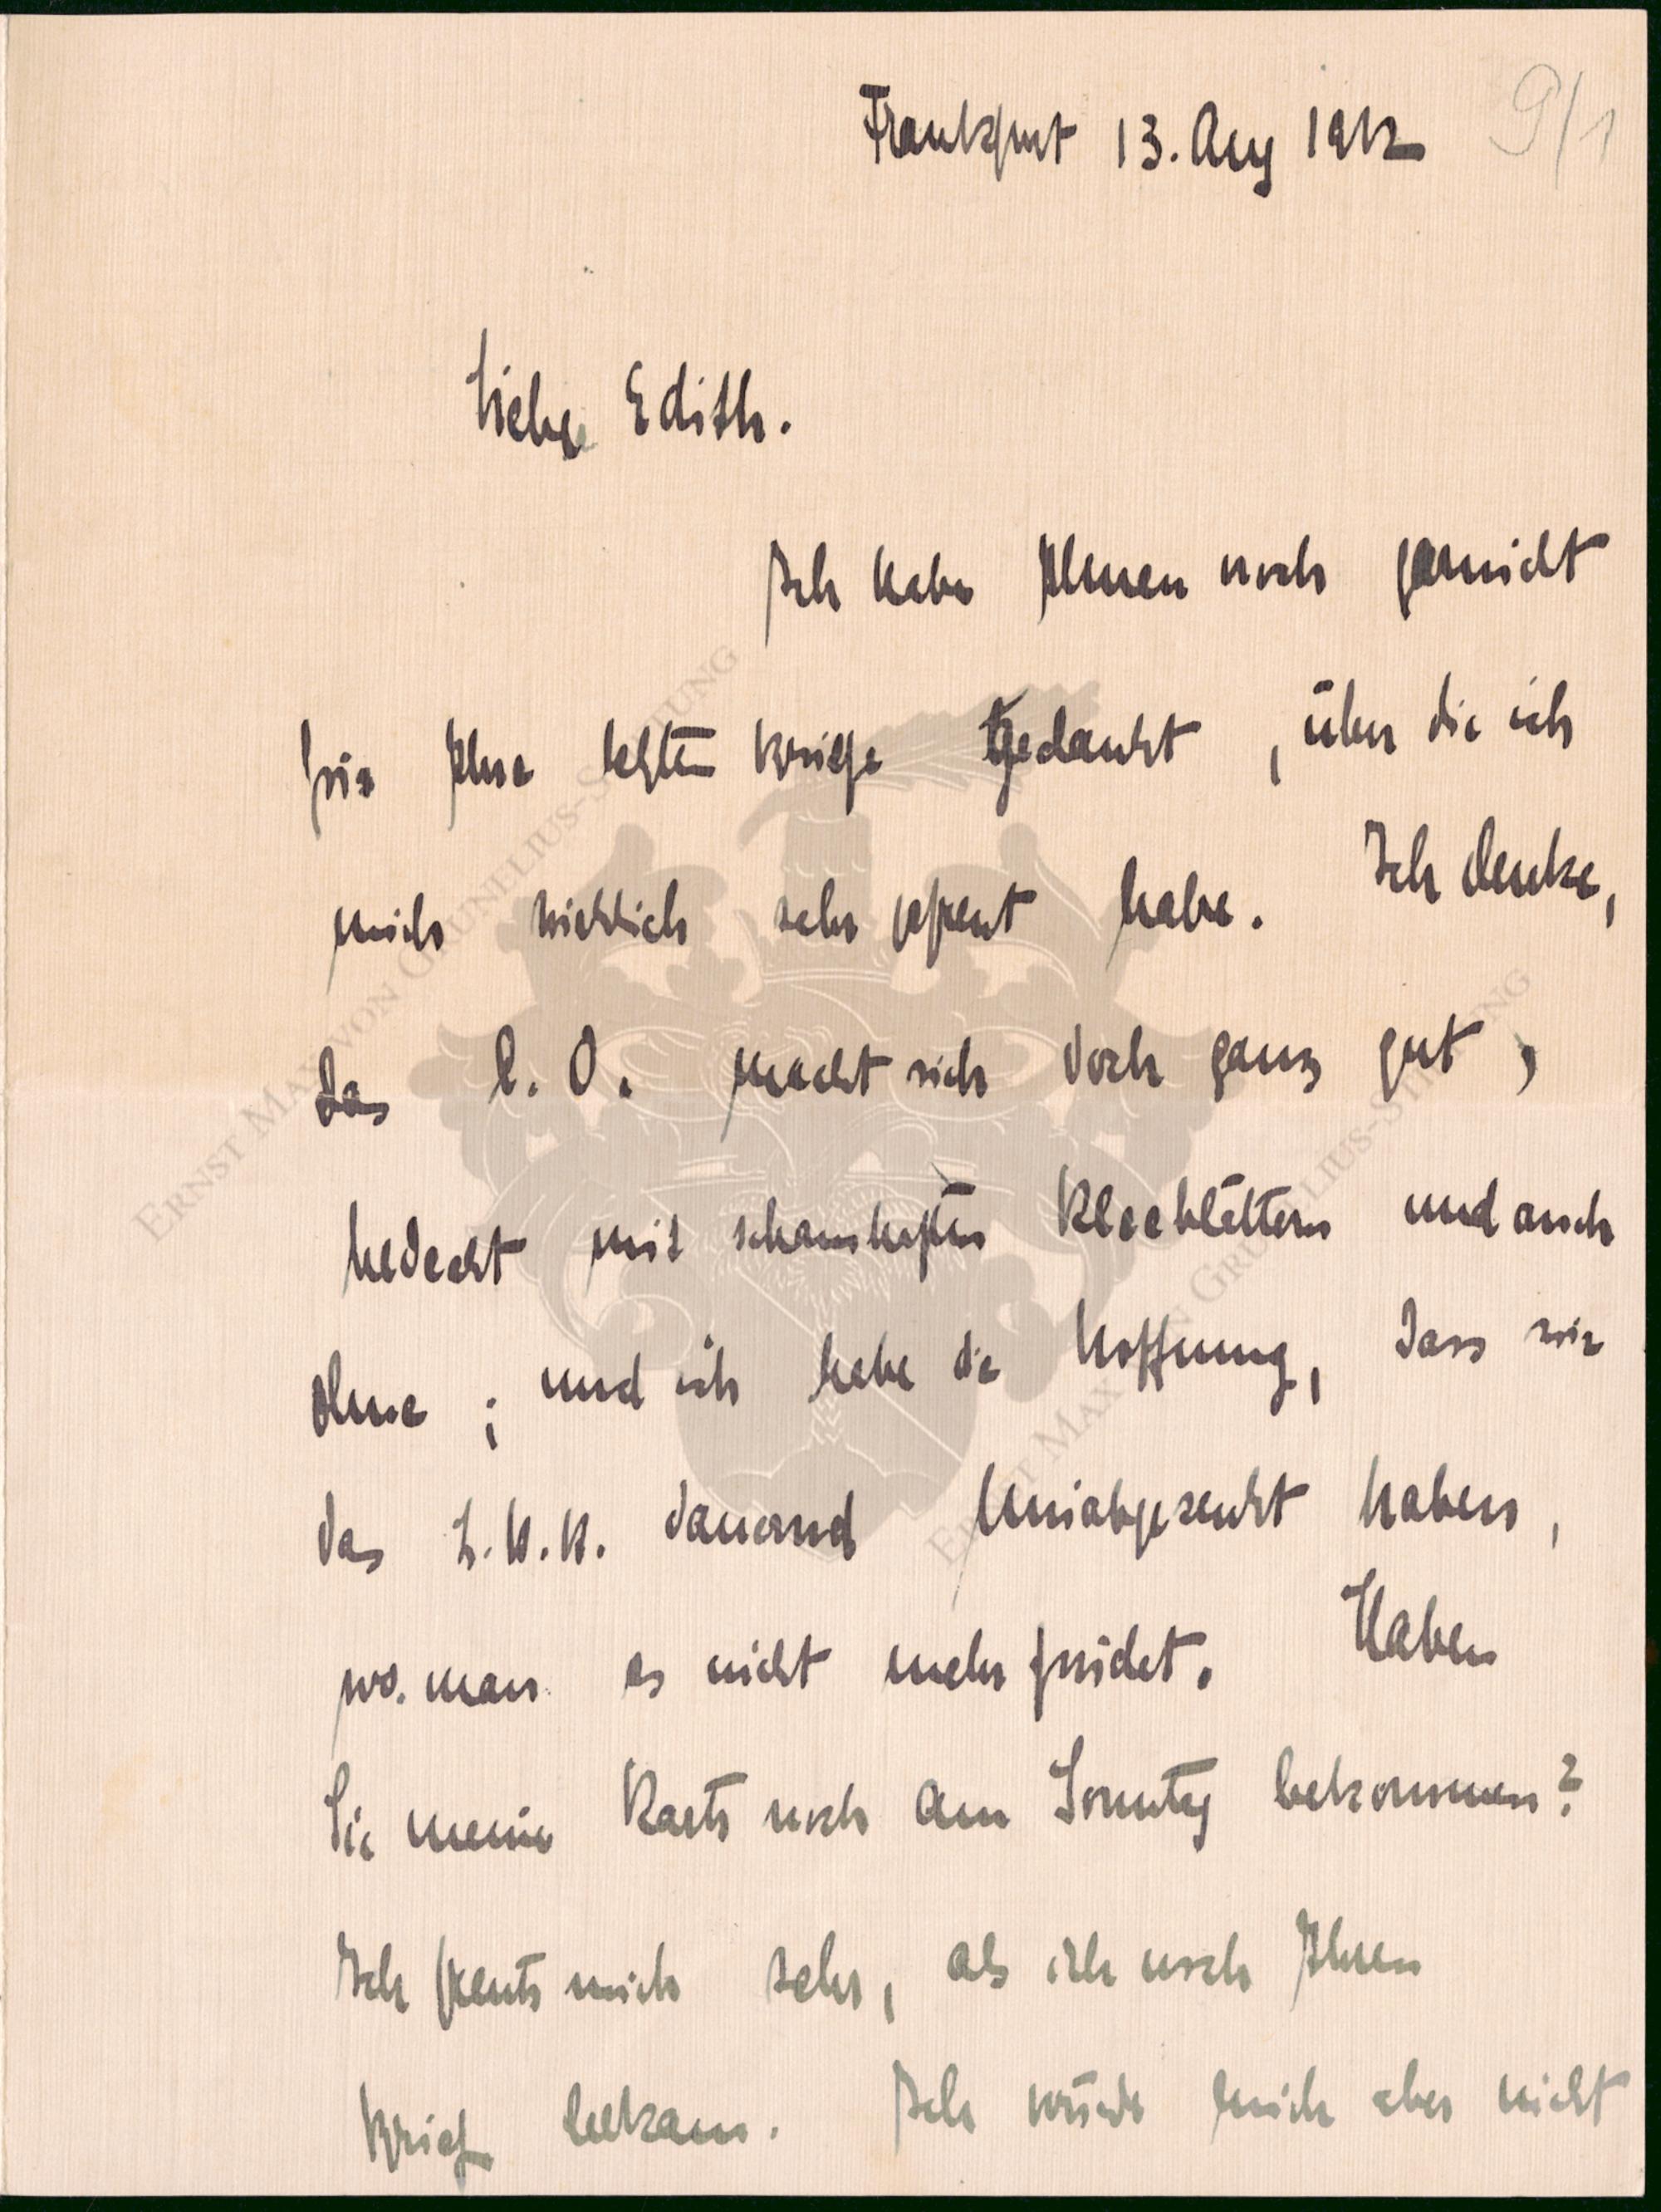 9/1
Frankfurt 13. Aug 1912
Liebe Edith.
Ich habe Ihnen noch garnicht
für Ihre letzten Briefe gedankt, über die ich
mich wirklich sehr gefreut habe. Ich denke,
das E. O. macht sich doch ganz gut,
bedeckt mit schamhaften Kleeblättern und auch
ohne; und ich habe die Hoffnung, dass wir
das haben,
wo man es nicht mehr findet. Haben
Sie meine Karte noch am Sonntag bekommen?
Ich freute mich sehr, als ich noch Ihren
Brief bekam. Ich würde mich aber nicht
ERNST MAX VON GRUNELIUS-STIFTUNG
ERNST MAX VON GRUNELIUS-STIFTUNG